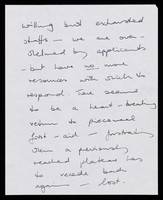 willing but exhausted
staffs — we are over-
whelmed by applicants
- but have no more
resources with which to
respond. Tere seemed
to be a heart-breaking
return to piecemeal
first-aid — frustrating
when a previously
reached plateau has
to recede back
again — lost.